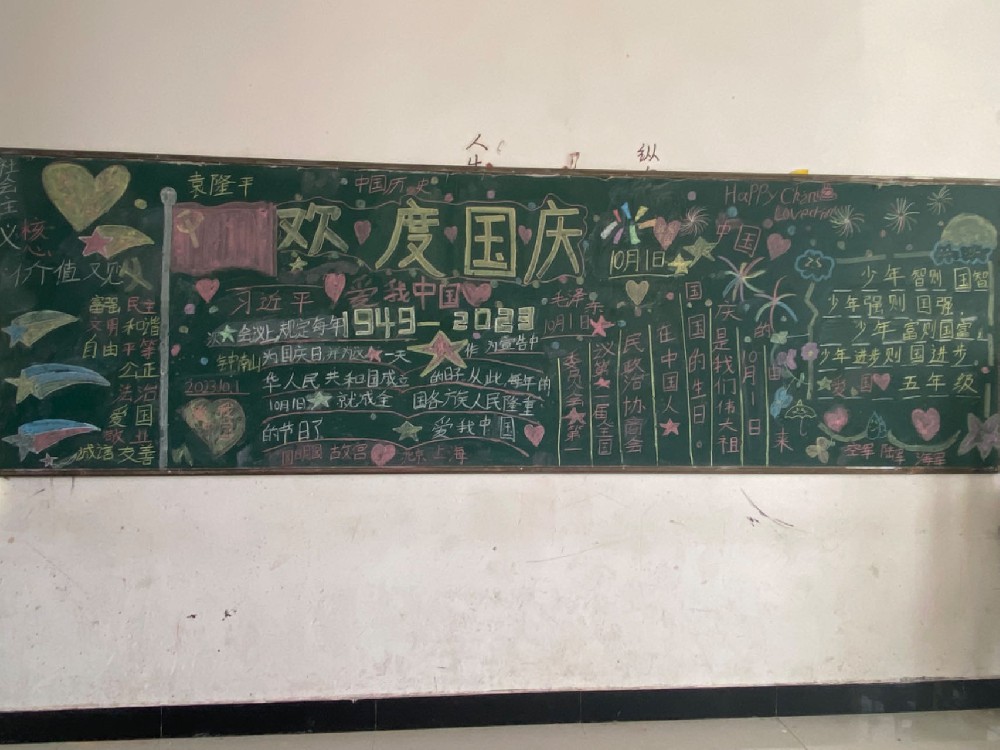 人生
纵
社会主义核心价值观
富强 民主
文明 和谐
自由 平等
公正
法治
爱国
敬业
诚信 友善
袁隆平
中国历史
欢度国庆
10月1日
习近平
爱我中国
1949—2023
会议上规定每年
钟南山
为国庆日
一天
2023.10.1
华人民共和国成立 的日子从此,每年的
10月1日 就成全 国各方矣人民隆重
的节日了
爱我中国
圆明园 故宫 北京 上海
毛泽东
10月1日
委员会 第一
议第一届全国
民政治协商会
在中国人
国国的生日。
庆是我们伟大祖
10月1日
的 来
Happy
中国
少年智则国智
少年强则国强,
少年富则国富,
少年进步则国进步
爱国 五年级
空军 陆军 海军